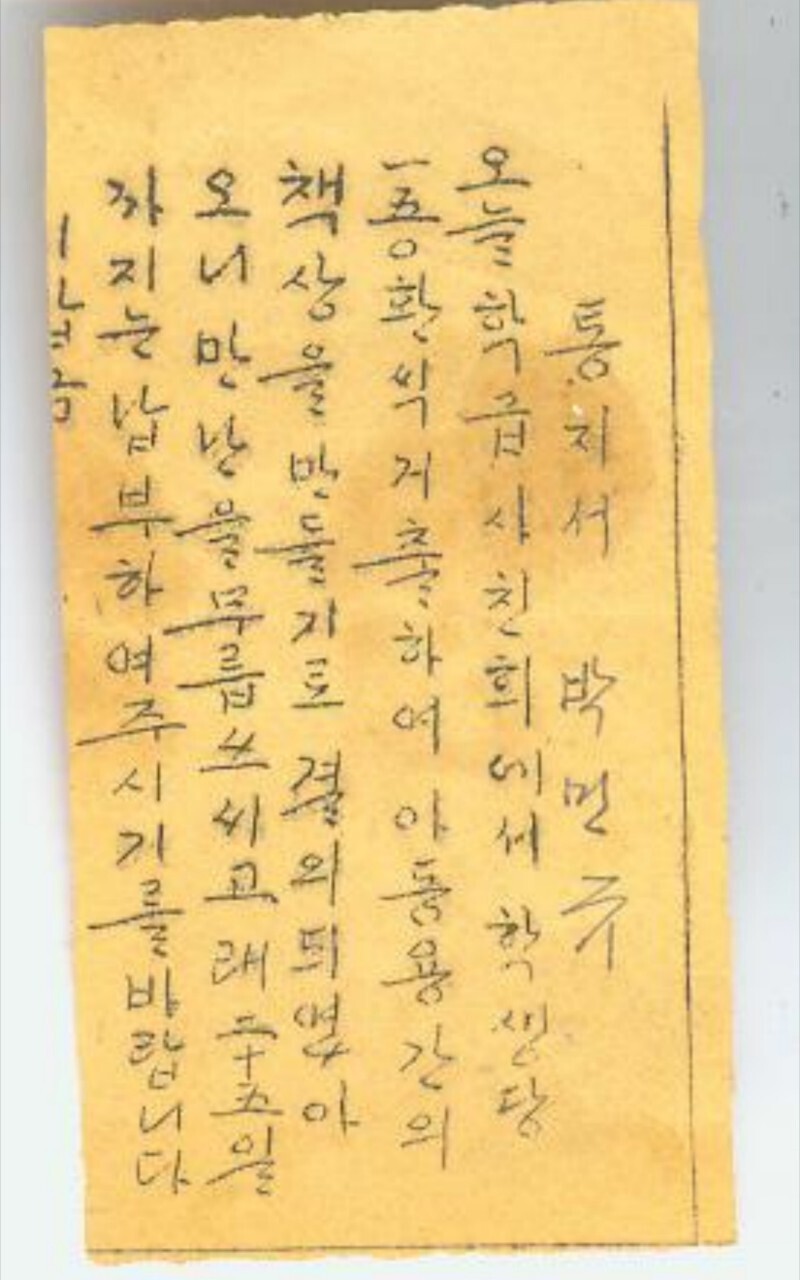 통지서 박민주
오늘학급사친회에서 학생당
一五○환씩 거출하여 아동용간의
책상을 만들기로 결의되엿아
오니 만난을무릅쓰씨고 래二十五일
까지는납부하여주시기를바랍니다